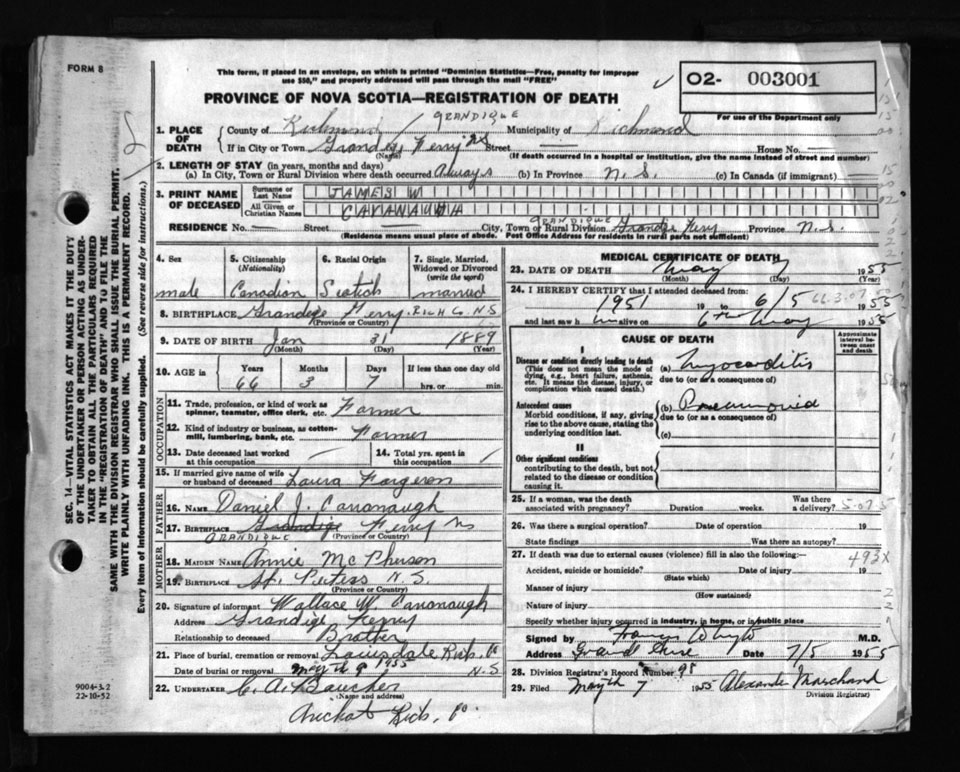 FORM 8
This form, if placed in an envelope, on which is printed "Dominion Statistics—Free, penalty for improper
use $50," and properly addressed will pass through the mail "FREE"
PROVINCE OF NOVA SCOTIA—REGISTRATION OF DEATH
O2- 003001
For use of the Department only
GRANDIQUE
1. PLACE OF DEATH
County of Richmond Municipality of Richmond
If in City or Town Grandige Ferry N.S Street — House No. —
(Name) (If death occurred in a hospital or institution, give the name instead of street and number)
2. LENGTH OF STAY (in years, months and days)
(a) In City, Town or Rural Division where death occurred Always (b) In Province N. S. (c) In Canada (if immigrant) —
3. PRINT NAME OF DECEASED
Surname or Last Name JAMES W
All Given or Christian Names CAVANAUHA
GRANDIQUE
RESIDENCE No. — Street — City, Town or Rural Division Grandige Ferry Province N.S.
(Residence means usual place of abode. Post Office Address for residents in rural parts not sufficient)
4. Sex 5. Citizenship (Nationality) 6. Racial Origin 7. Single, Married, Widowed or Divorced (write the word)
male Canadian Scotich married
8. BIRTHPLACE Grandige Ferry. RICH Co. N.S
(Province or Country)
9. DATE OF BIRTH Jan 31 1889
(Month) (Day) (Year)
10. AGE in Years Months Days If less than one day old
66 3 7 hrs. or min.
OCCUPATION
11. Trade, profession, or kind of work as spinner, teamster, office clerk, etc. Farmer
12. Kind of industry or business, as cotton-mill, lumbering, bank, etc. Farmer
13. Date deceased last worked at this occupation 14. Total yrs. spent in this occupation
15. If married give name of wife or husband of deceased Laura Fargeron
FATHER
16. NAME Daniel J. Cavanaugh
17. BIRTHPLACE Grandige Ferry NS
GRANDIQUE (Province or Country)
MOTHER
18. MAIDEN NAME Annie Mc Pherson
19. BIRTHPLACE St. Peters N.S.
(Province or Country)
20. Signature of informant Wallace W. Cavanaugh
Address Grandige Ferry
Relationship to deceased Brother
21. Place of burial, cremation or removal Louisdale Rich. Co
Date of burial or removal May th 9 1955 N.S
22. UNDERTAKER C. A. Boucher
(Name and address)
Arichat Rich. Co.
9004-3.2
22-10-52
MEDICAL CERTIFICATE OF DEATH
23. DATE OF DEATH May 7 1955
(Month) (Day) (Year)
24. I HEREBY CERTIFY that I attended deceased from:
1951 19 to 6/5 1955
and last saw him alive on 6th May 1955
CAUSE OF DEATH
Approximate interval between onset and death
I
Disease or condition directly leading to death
(This does not mean the mode of dying, e.g., heart failure, asthenia, etc. It means the disease, injury, or complication which caused death.)
(a) Myocarditis
due to (or as a consequence of)
Antecedent causes
Morbid conditions, if any, giving rise to the above cause, stating the underlying condition last.
(b) Pneumonia
due to (or as a consequence of)
(c)
II
Other significant conditions
contributing to the death, but not related to the disease or condition causing it.
25. If a woman, was the death associated with pregnancy? Duration weeks. Was there a delivery?
26. Was there a surgical operation? Date of operation 19
State findings Was there an autopsy?
27. If death was due to external causes (violence) fill in also the following:—
493X
Accident, suicide or homicide? Date of injury 19
(State which)
Manner of injury
(How sustained)
Nature of injury
Specify whether injury occurred in industry, in home, or in public place
Signed by Francis Whyte M.D.
Address Grand Anse Date 7/5 1955
28. Division Registrar's Record Number 98
29. Filed May th 7 1955 Alexander Marchand
Division Registrar)
SEC. 14—VITAL STATISTICS ACT MAKES IT THE DUTY
OF THE UNDERTAKER OR PERSON ACTING AS UNDER-
TAKER TO OBTAIN ALL THE PARTICULARS REQUIRED
IN THE "REGISTRATION OF DEATH" AND TO FILE THE
SAME WITH THE DIVISION REGISTRAR WHO SHALL ISSUE THE BURIAL PERMIT.
WRITE PLAINLY WITH UNFADING INK. THIS IS A PERMANENT RECORD.
Every item of information should be carefully supplied. (See reverse side for instructions.)